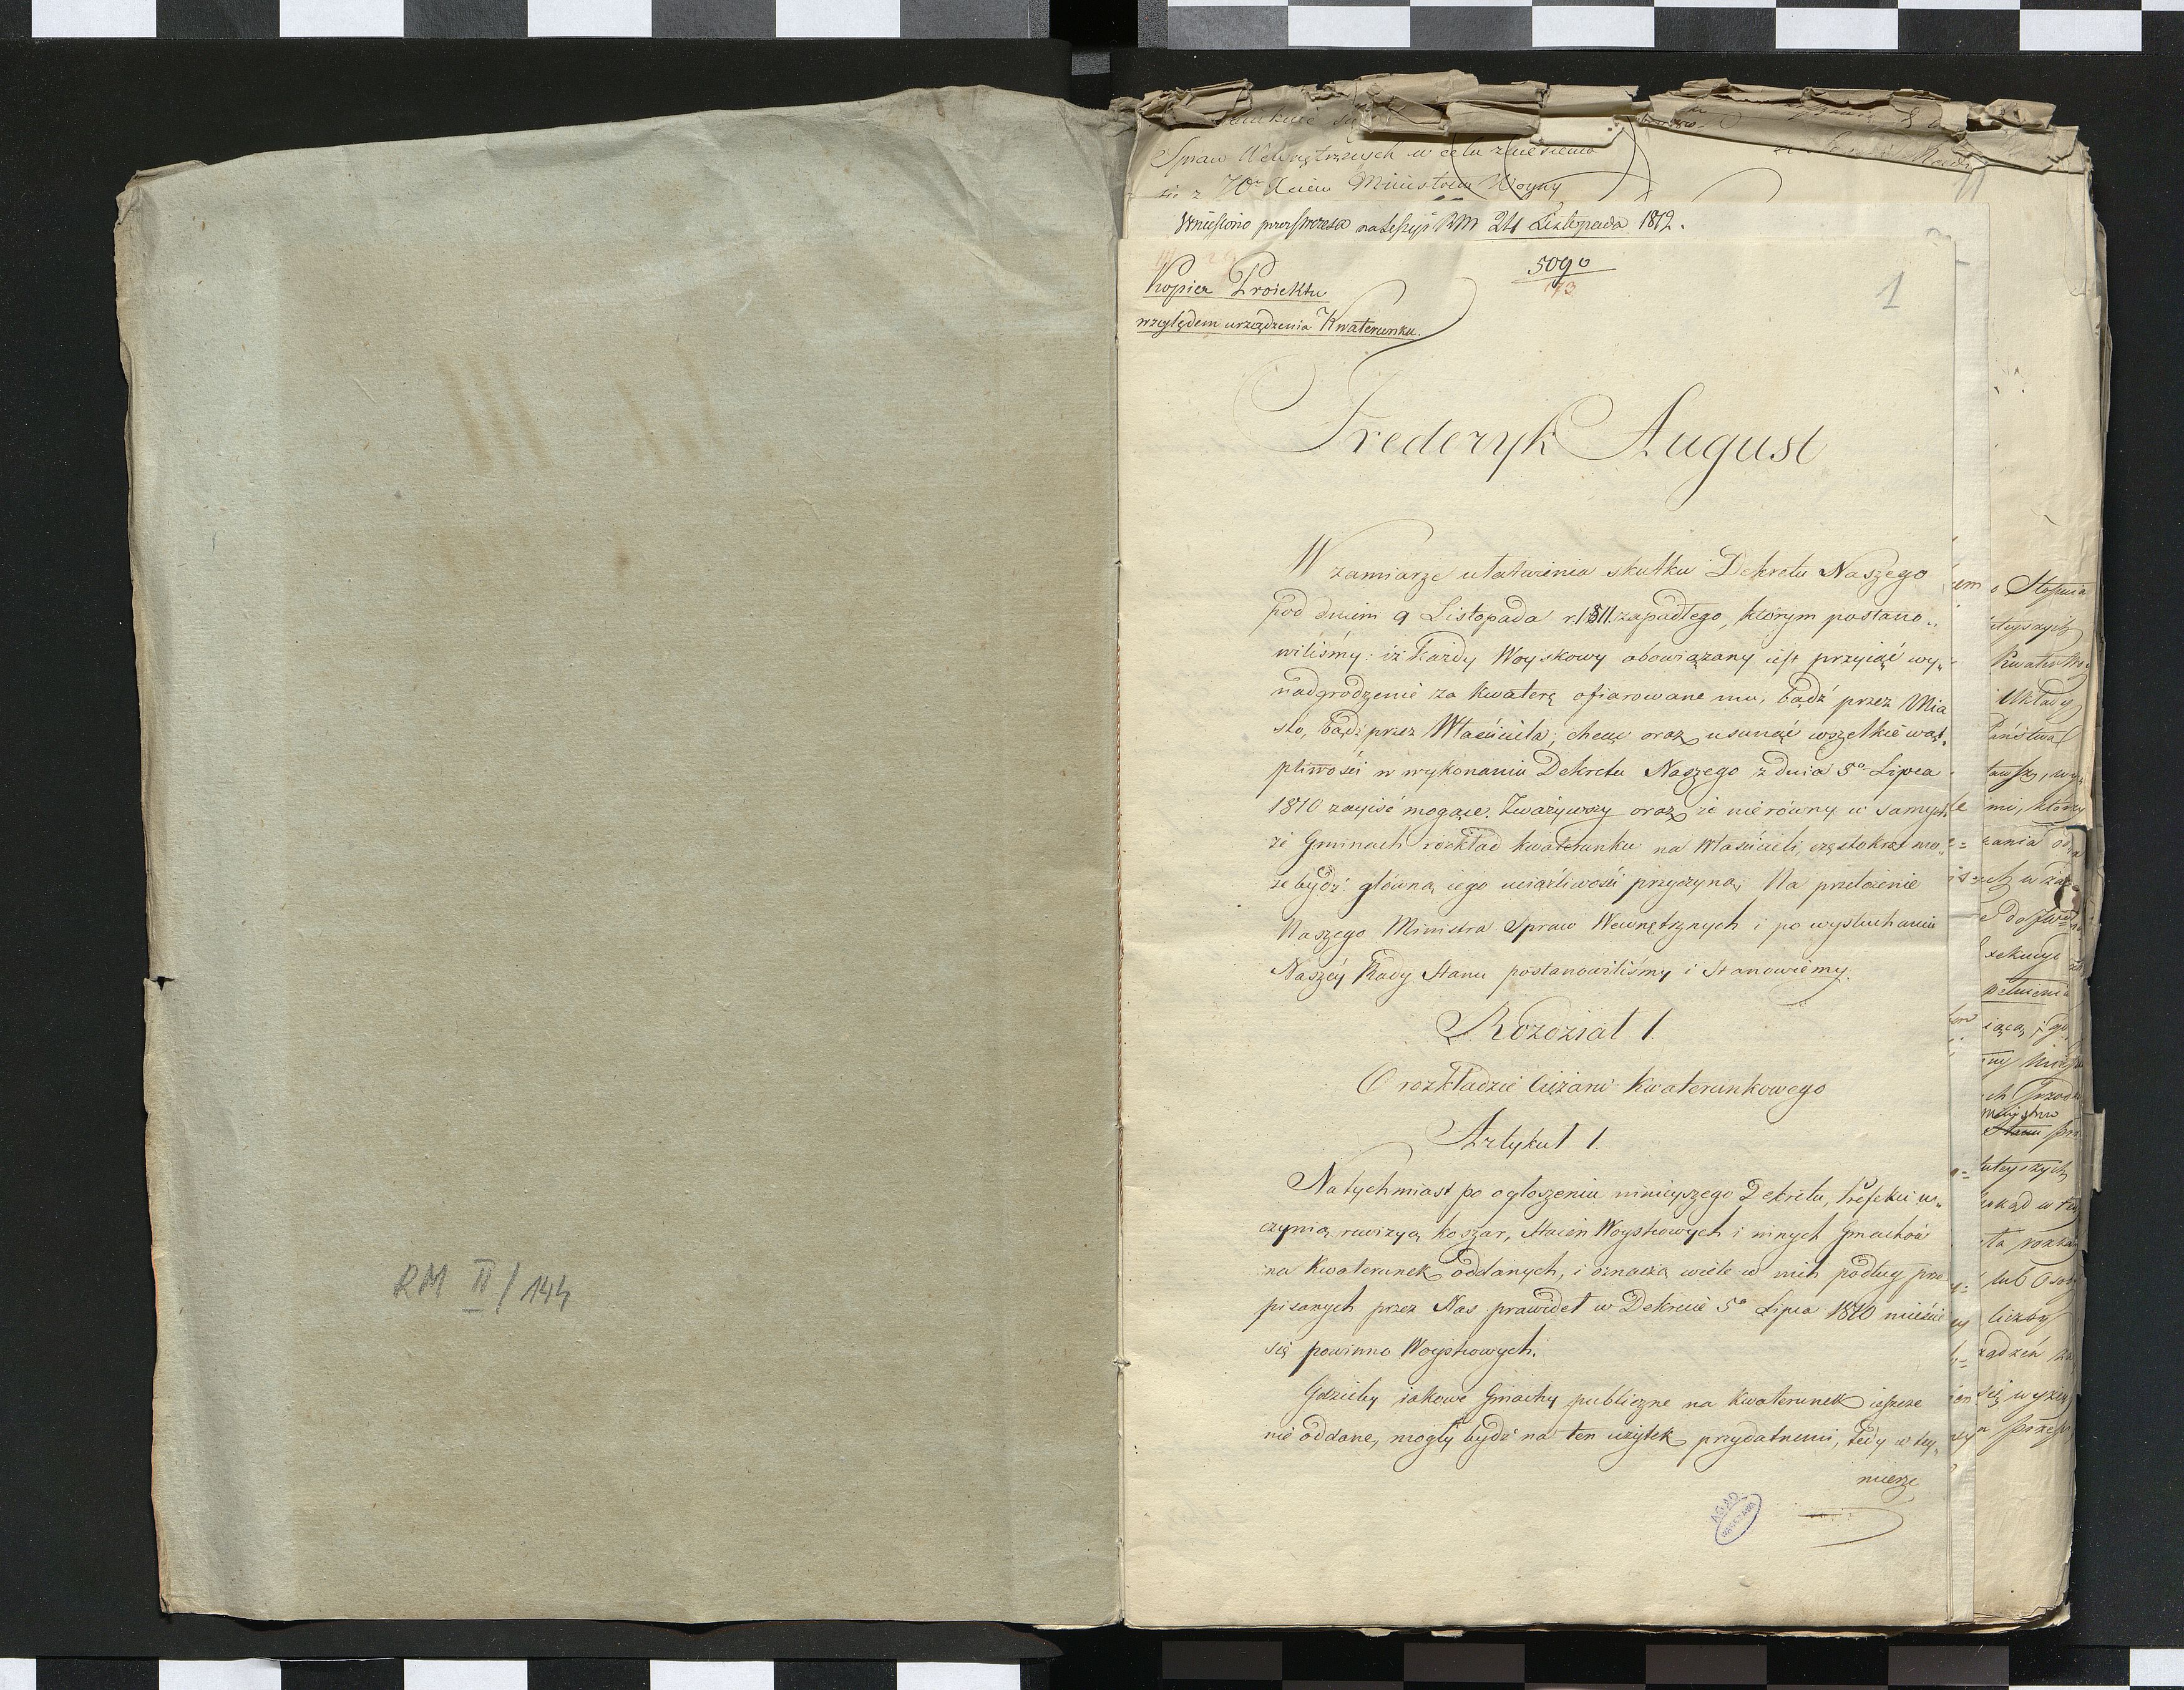 RM II/144
Spraw Wewnętrznych w celu zniesienia
się z JO Xciem Ministrem Woyny
Wniesiono przez Prezesa na Sessyi RM 24 Listopada 1812.
5090
173
1
Kopiia Proiektu
względem urządzenia Kwaterunku.
Frederyk August
W zamiarze ułatwienia skutku Dekretu Naszego
pod dniem 9 Listopada r. 1811. zapadłego, którym postano„
wiliśmy: iż każdy Woyskowy obowiązany iest przyiąć wy„
nadgrodzenie za kwaterę ofiarowane mu, bądź przez Mia
sto, bądź przez Właściciela; chcąc oraz usunąć wszelkie wąt„
pliwości w wykonaniu Dekretu Naszego z dnia 5o Lipca
1810 zayiść mogące. Zważywszy oraz że nierówny w samych
że Gminach rozkład kwaterunku na Właścicieli, częstokroć mo„
że bydź główną iego uciążliwości przyczyną; Na przełożenie
Naszego Ministra Spraw Wewnętrznych i po wysłuchaniu
Naszéy Rady Stanu postanowiliśmy i Stanowiemy.
Rozdział 1.
O rozkładzie Ciężaru Kwaterunkowego
Artykuł 1.
Natychmiast po ogłoszeniu ninieyszego Dekretu, Prefekci u„
czynią rewizyą koszar, Stacień Woyskowych i innych Gmachów
na Kwaterunek oddanych, i oznaczą wiele w nich podług prze
pisanych przez Nas prawideł w Dekrecie 5o Lipca 1810 mieścić
się powinno Woyskowych.
Gdzieby iakowe Gmachy publiczne na Kwaterunek ieszcze
nie oddane, mogły bydź na ten użytek przydatnemi, tedy w tey„
mierze
AGAD
WARSZAWA